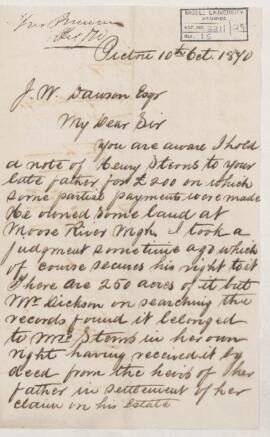 McGILL UNIVERSITY
ARCHIVES
ACC. NO. 2211/
REF.
Pictou 10th Oct. 1870
J. W. Dawson Esqr
My Dear Sir
You are aware I hold
a note of Henry Stems to your
late father for £200 on which
some partial payments were made
He owned some land at
Moose River Mgh. I took a
judgment sometime ago which
of course secures his right to it
There are 250 acres of it but
Mr Dickson on searching the
records found it belonged
to Mrs Stems in her own
right having received it by
deed from the heirs of her
father in settlement of her
claim on his Estate